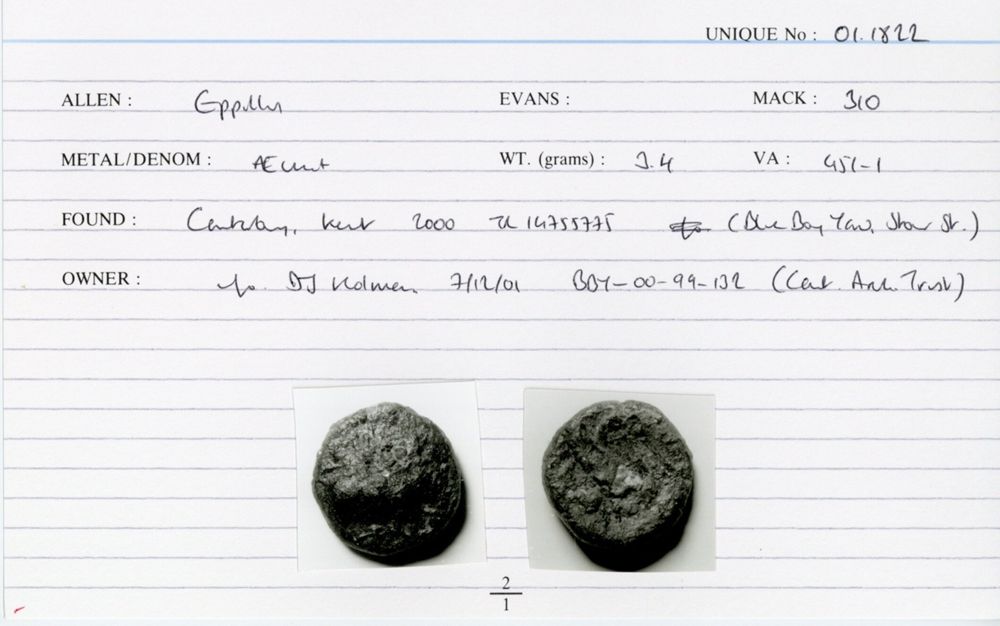 UNIQUE No : 01.1822
ALLEN : Eppillus EVANS : MACK : 310
METAL/DENOM : Æ unit WT. (grams) : 3.4 VA : 451-1
FOUND : Canterbury, Kent 2000 TR 14755775 (Blue Boy Yard, Stour St.)
OWNER : i/o. DJ Holman 7/12/01 BBY-00-99-132 (Cant. Arch. Trust)
2
1